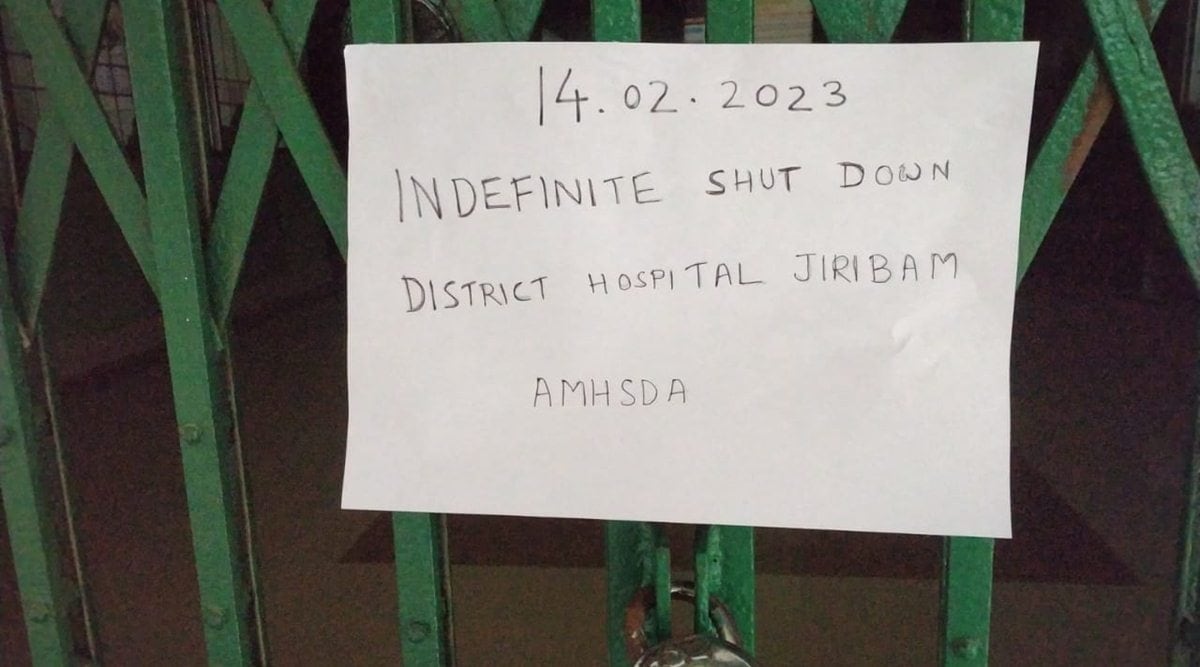 14.02.2023
INDEFINITE SHUT DOWN
DISTRICT HOSPITAL JIRIBAM
AMHSDA